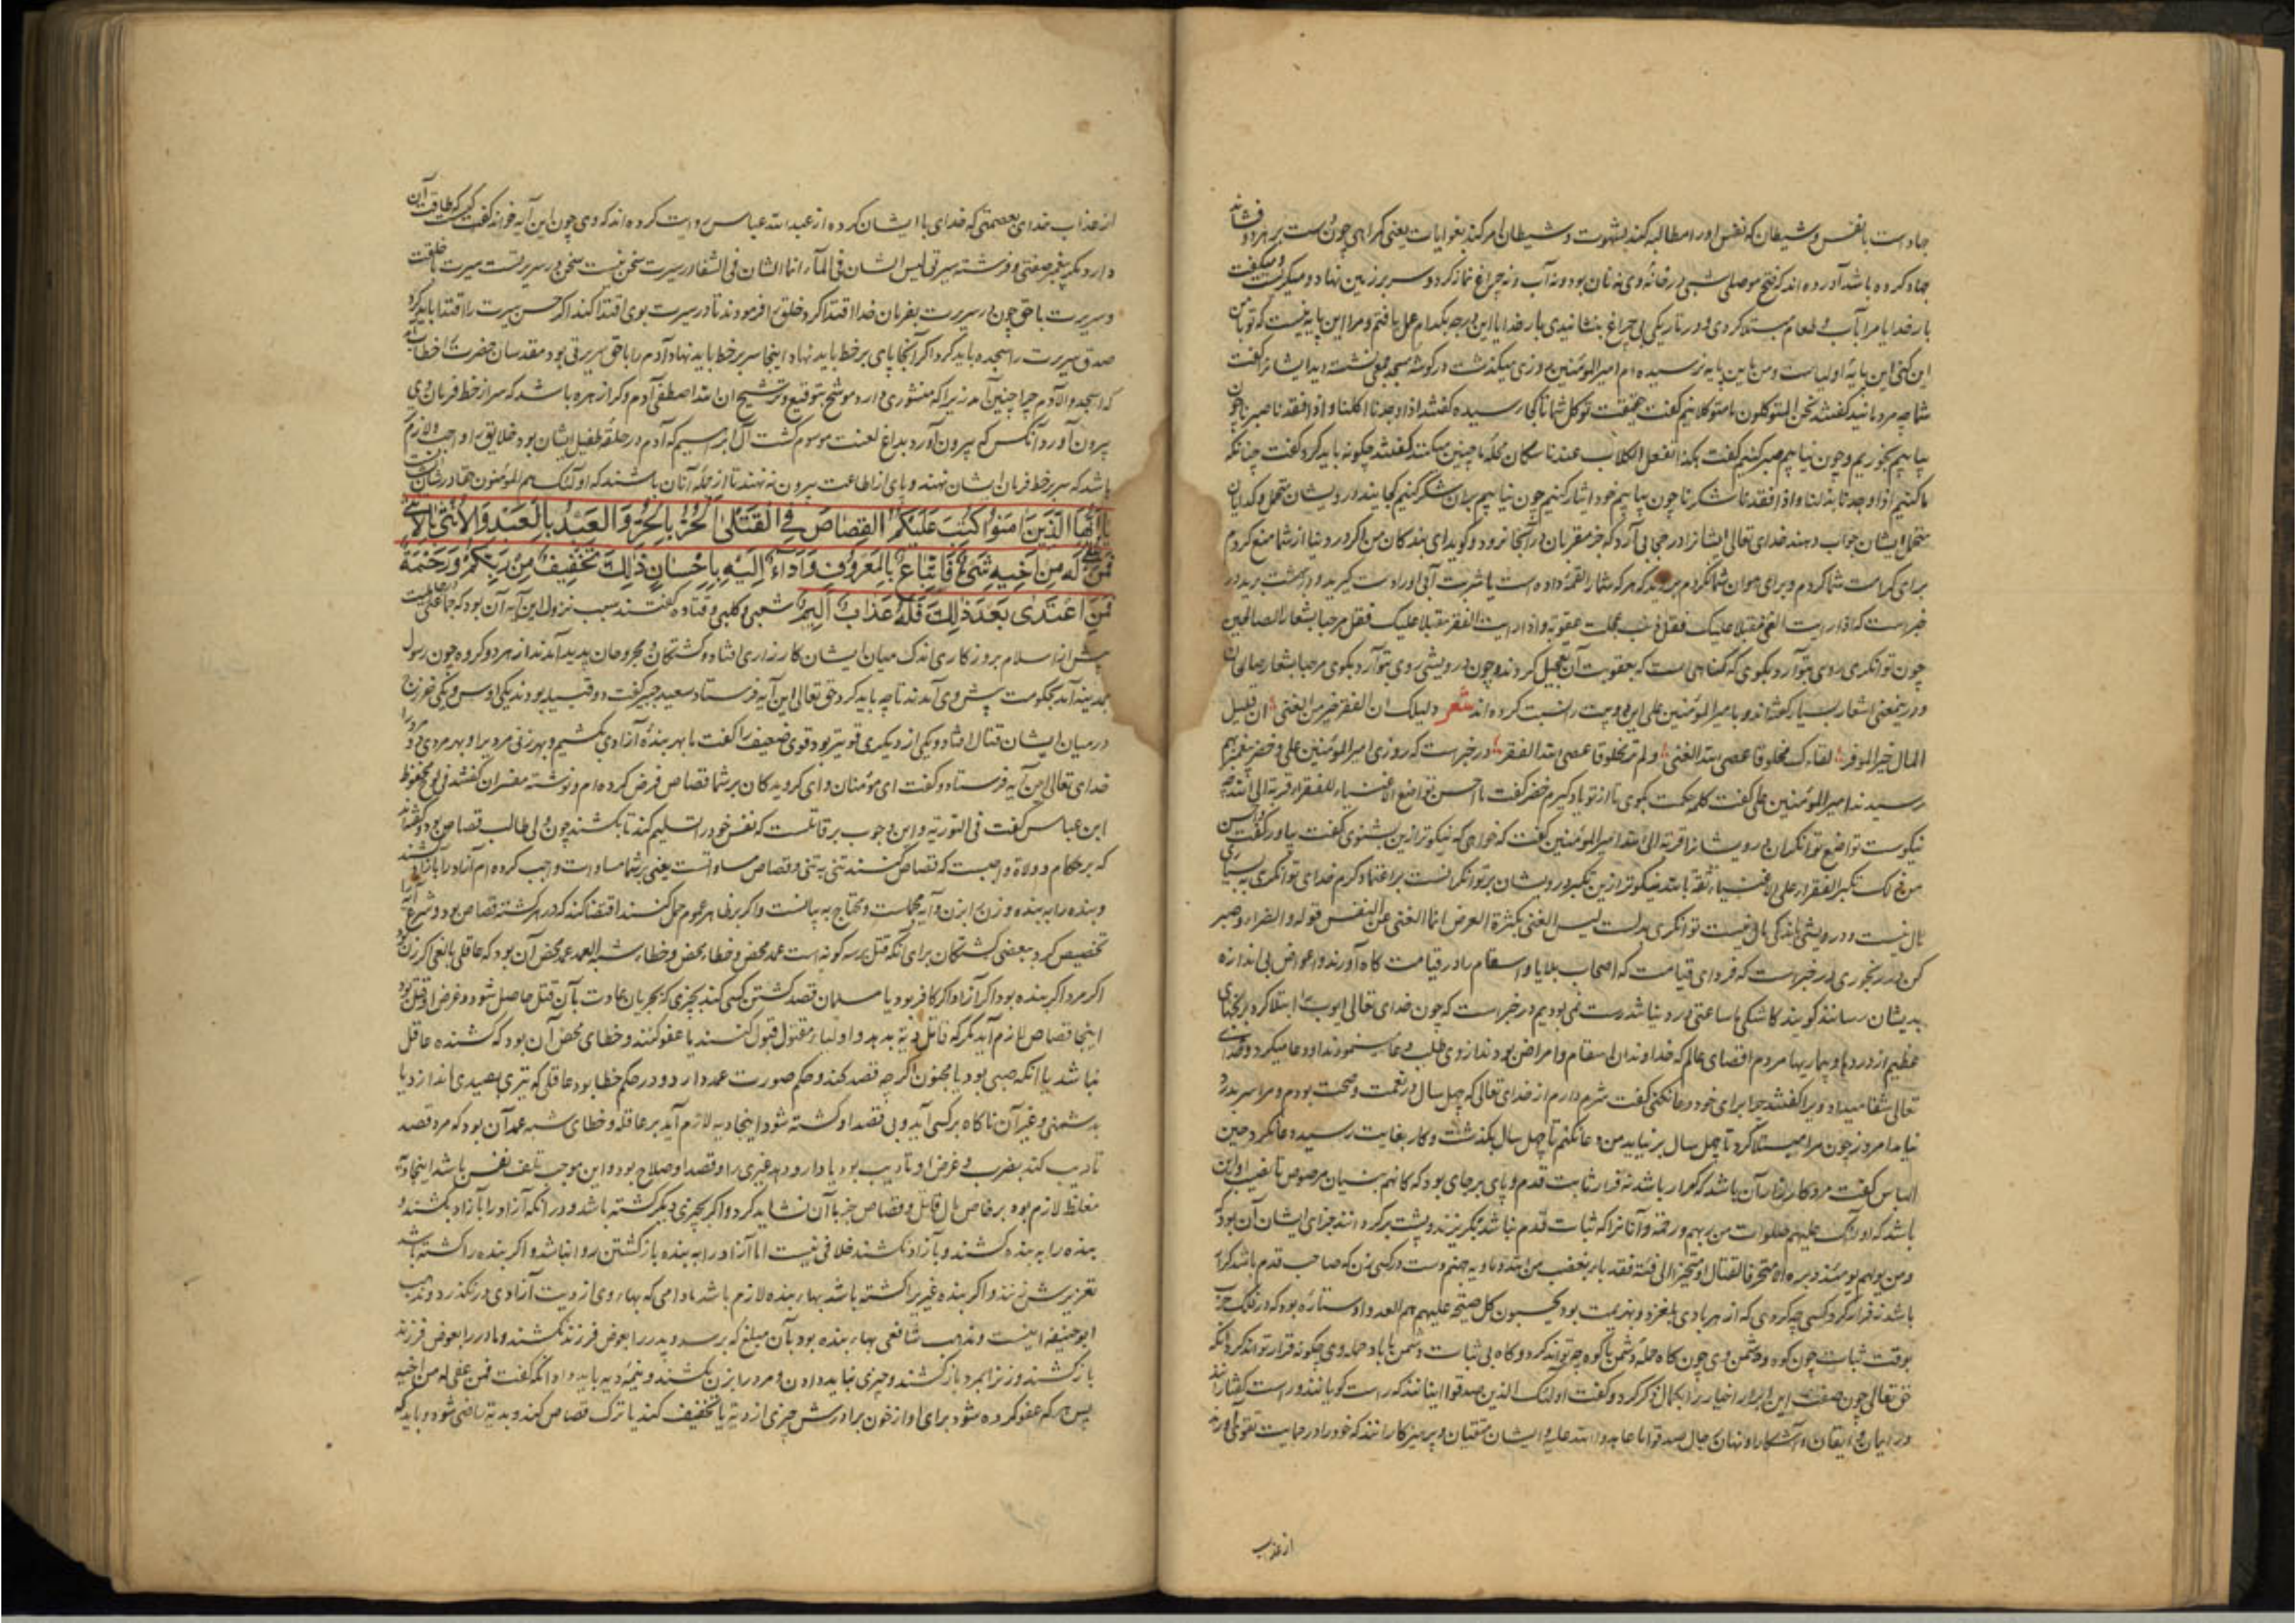 جهاد است با نفس و شیطان که نفس او را مطالبه کند بشهوت و شیطان امر کند بغوایات یعنی گمراهی چون دست بر هر دو فشاند
جهاد کرده باشد آورده اند که فتح موصلی شبی در خانه وی نه نان بود و نه آب و نه چراغ نماز کرد و سر بر زمین نهاد و میگریست و میگفت
بار خدایا مرا بآب و طعام مبتلا کردی و در تاریکی بی چراغ بنشاندی بار خدایا این درجه بکدام عمل یافتم و مرا این پایه نیست که تو با من
این کنی این پایه اولیاست و من باین پایه نرسیده ام امیر المؤمنین روزی میگذشت در گوشه مسجد جمعی نشسته دید ایشانرا گفت
شما چه مردمانید گفتند نحن المتوکلون ما متوکلانیم گفت حقیقت توکل شما تا کجا رسیده گفتند اذا وجدنا اکلنا و اذا فقدنا صبرنا چون
بیابیم بخوریم و چون نیابیم صبر کنیم گفت هکذا تفعل الکلاب عندنا سگان محله ما چنین میکنند گفتند چگونه باید کرد گفت چنانکه
ما کنیم اذا وجدنا بذلنا و اذا فقدنا شکرنا چون بیابیم خود ایثار کنیم چون نیابیم بران شکر کنیم کجایند درویشان متحمل و گدایان
متحمل ایشان جواب دهند خدای تعالی ایشانرا در حجابی آرد که جز مقربان در آنجا نرود و گوید ای بندگان من اگر در دنیا از شما منع کردم
برای کرامت شما کردم و برای هوان شما نکردم بروید و هر که شما را لقمه داده است یا شربت آبی او را دست گیرید و در بهشت برید در
خبر است که اذا رایت الغنی مقبلا علیک فقل ذنب عجلت عقوبته و اذا رایت الفقر مقبلا علیک فقل مرحبا بشعار الصالحین
چون توانگری روی بتو آرد بگوی که گناهی است که بعقوبت آن تعجیل کردند و چون درویشی روی بتو آرد بگوی مرحبا بشعار صالحان
و در این معنی اشعار بسیار گفته اند و با میر المؤمنین علی این دو بیت را نسبت کرده اند شعر دلیلک ان الفقر خیر من الغنی ان قلیل
المال خیر الموفر لقاءک مخلوقا عصی الله للغنی و لم تر مخلوقا عصی الله للفقر در خبر است که روزی امیر المؤمنین علی و خضر پیغمبر بهم
رسیدند امیر المؤمنین علی گفت کلمه حکمت بگوی تا از تو یاد گیرم خضر گفت ما احسن تواضع الاغنیاء للفقراء قربة الی الله چه
نیکوست تواضع توانگران درویشانرا قربة الی الله امیر المؤمنین گفت که خواهی که نیکوتر ازین بشنوی گفت بیاور گفت و احسن
من ذلک تکبر الفقراء علی الاغنیاء ثقة بالله نیکوتر ازین تکبر درویشان بر توانگرانست بر اعتماد کرم خدای توانگری به بسیاری
مال نیست و درویشی باندکی مال نیست توانگری بدلست لیس الغنی بکثرة العرض انما الغنی غنی النفس قوله و الضراء و صبر
کن در رنجوری در خبر است که فردای قیامت که اصحاب بلایا و اسقام را در قیامت گاه آورند و اعواض بی اندازه
بدیشان رسانند گویند کاشکی ما ساعتی در دنیا تندرست نمی بودیم در خبر است که چون خدای تعالی ایوب را ابتلا کرد برنجهای
عظیم از دردها و بیماریها مردم اقصای عالم که خداوندان اسقام و امراض بودند از وی طلب دعا مینمودند او دعا میکرد و خدای
تعالی شفا میداد ویرا گفتند چرا برای خود دعا نکنی گفت شرم دارم از خدای تعالی که چهل سال در نعمت و صحت بودم و مرا سر بدرد
نیامد امروز چون مرا مبتلا کرد تا چهل سال برنیاید من دعا نکنم تا چهل سال بگذشت و کار بغایت رسید دعا نکرد و حین
الباس گفت مرد کارزار آن باشد که کرار باشد نه فرار ثابت قدم و پای بر جای بود که کانهم بنیان مرصوص تا نصیب او این
باشد که اولئک علیهم صلوات من ربهم و رحمة و آنانرا که ثبات قدم نباشد بگریزند و پشت برگردانند جزای ایشان آن بود که
و من یولهم یومئذ دبره الا متحرفا لقتال او متحیزا الی فئة فقد باء بغضب من الله و ماویه جهنم دست در کسی زن که صاحب قدم باشد کرار
باشد نه فرار گرد کسی چه گردی که از هر بادی بلغزد و بهزیمت بود یحسبون کل صیحة علیهم هم العدو او ستاره بود که در فلک حرب
بوقت ثبات چون کوه و دشمن وی چون کاه حمله دشمن با کوه چه تواند کرد و کاه بی ثبات دشمن با باد حمله وی چگونه قرار تواند کرد آنکه
حق تعالی چون صفت این ابرار اخیار را بکمال ذکر کرد و گفت اولئک الذین صدقوا اینانند که راست گویانند و راست گفتارانند
در ایمان و ایقان و آشکارا و نهان رجال صدقوا ما عاهدوا الله علیه و ایشان متقیان و پرهیزکارانند که خود را در حمایت تقوی آورند
از عذاب
از عذاب خدای بعصمتی که خدای با ایشان کرده از عبد الله عباس روایت کرده اند که وی چون این آیه خواند گفت کیست که طاقت آن
دارد مگر پیغمبر صفتی و فرشته سیرتی لیس الشان فی المآء انما الشان فی الشفا در سیرت سخن نیست سخن در سریرتست سیرت با خلقت
و سریرت با حق چون در سریرت بفرمان خدا اقتدا کرد خلق را فرمودند تا در سیرت بوی اقتدا کنند اگر حسن سیرت را اقتدا باید کرد
صدق سریرت را سجده باید کرد اگر آنجا پای بر خط باید نهاد اینجا سر بر خط باید نهاد آدم را با حق سریرتی بود مقدسان حضرت را خطاب آمد
که اسجدوا لآدم چرا چنین آمد زیرا که منشوری دارد موشح بتوقیع و ترشیح ان الله اصطفی آدم و کرا زهره باشد که سر از خط فرمان وی
بیرون آورد آنکس که بیرون آورد بداغ لعنت موسوم گشت آل ابراهیم که آدم در حلقه طفیل ایشان بود خلایق را واجب و لازم
باشد که سر بر خط فرمان ایشان نهند و پای از طاعت بیرون ننهند تا از جمله آنان باشند که اولئک هم المؤمنون حقا در شان ایشانست
یا ایها الذین امنوا کتب علیکم القصاص فی القتلی الحر بالحر و العبد بالعبد و الانثی بالانثی
فمن عفی له من اخیه شیء فاتباع بالمعروف و اداء الیه باحسان ذلک تخفیف من ربکم و رحمة
فمن اعتدی بعد ذلک فله عذاب الیم شعبی و کلبی و قتاده گفتند سبب نزول این آیه آن بود که در جاهلیت
پیش از اسلام بروزگاری اندک میان ایشان کارزاری افتاد و کشتگان و مجروحان پدید آمدند از هر دو گروه چون رسول
بمدینه آمد بحکومت پیش وی آمدند تا چه باید کرد حق تعالی این آیه فرستاد سعید جبیر گفت دو قبیله بودند یکی اوس و یکی خزرج
در میان ایشان قتال افتاد و یکی از دیگری قویتر بود قوی ضعیف را گفت ما بهر بنده آزادی بکشیم و بهر زنی مردیرا و بهر مردی دو مرد را
خدای تعالی این آیه فرستاد و گفت ای مؤمنان و ای گرویدگان بر شما قصاص فرض کرده ام و نوشته مفسران گفتند فی لوح محفوظ
ابن عباس گفت فی التوریة و این وجوب بر قاتلست که نفس خود را تسلیم کند تا بکشند چون ولی طالب قصاص بود و گفته اند
که بر حکام و ولاة واجبست که قصاص کنند تنی به تنی و قصاص مساواتست یعنی بر شما مساوات واجب کرده ام آزاد را بآزاد کشند
و بنده را به بنده و زن را بزن و آیه مجملست و محتاج به بیانست و اگر بر ظاهر عموم حمل کنند اقتضا کند که در هر کشته قصاص بود و شرع آنرا
تخصیص کرد ببعضی کشتگان برای آنکه قتل بر سه گونه است عمد محض و خطاء محض و خطاء شبیه العمد عمد محض آن بود که عاقلی بالغی اگر زن بود
اگر مرد اگر بنده بود اگر آزاد اگر کافر بود یا مسلمان قصد کشتن کسی کند بچیزی که بجریان عادت بآن قتل حاصل شود و غرض او قتل بود
اینجا قصاص لازم آید مگر که قاتل دیة بدهد و اولیاء مقتول قبول کنند یا عفو کنند و خطای محض آن بود که کشنده عاقل
نباشد یا آنکه صبی بود یا مجنون اگر چه قصد کند و حکم صورت عمد دارد و در حکم خطا بود عاقلی که تیری بصیدی اندازد یا
بدشمنی و غیر آن ناگاه بر کسی آید و بی قصد او کشته شود اینجا دیه لازم آید بر عاقله و خطای شبه عمد آن بود که مرد قصد
تادیب کند بضرب و غرض او تادیب بود یا دارو دهد غیری را و قصد او صلاح بود و این موجب تلف نفس باشد اینجا دیه
مغلظ لازم بود بر خاص مال قاتل و قصاص جز بآن نشاید کرد و اگر بچیزی دیگر کشته باشد و در آنکه آزاد را بآزاد بکشند و
بنده را به بنده کشند و بآزاد بکشند خلافی نیست اما آزاد را به بنده باز کشتن روا نباشد و اگر بنده را کشته باشد
تعزیرش زنند و اگر بنده غیریرا کشته باشد بهاء بنده لازم باشد مادامی که بهاء وی از دیت آزادی درنگذرد و مذهب
ابو حنیفه اینست و مذهب شافعی بهاء بنده بود بآن مبلغ که برسد و پدر را بعوض فرزند نکشند و مادر را بعوض فرزند
باز کشند و زنرا بمرد باز کشند و چیزی نباید دادن و مرد را بزن بکشند و نیمه دیه باید داد آنگه گفت فمن عفی له من اخیه
پس هر که عفو کرده شود برای او از خون برادرش چیزی از دیة یا تخفیف کند یا ترک قصاص کند و بدیة راضی شود و باید که